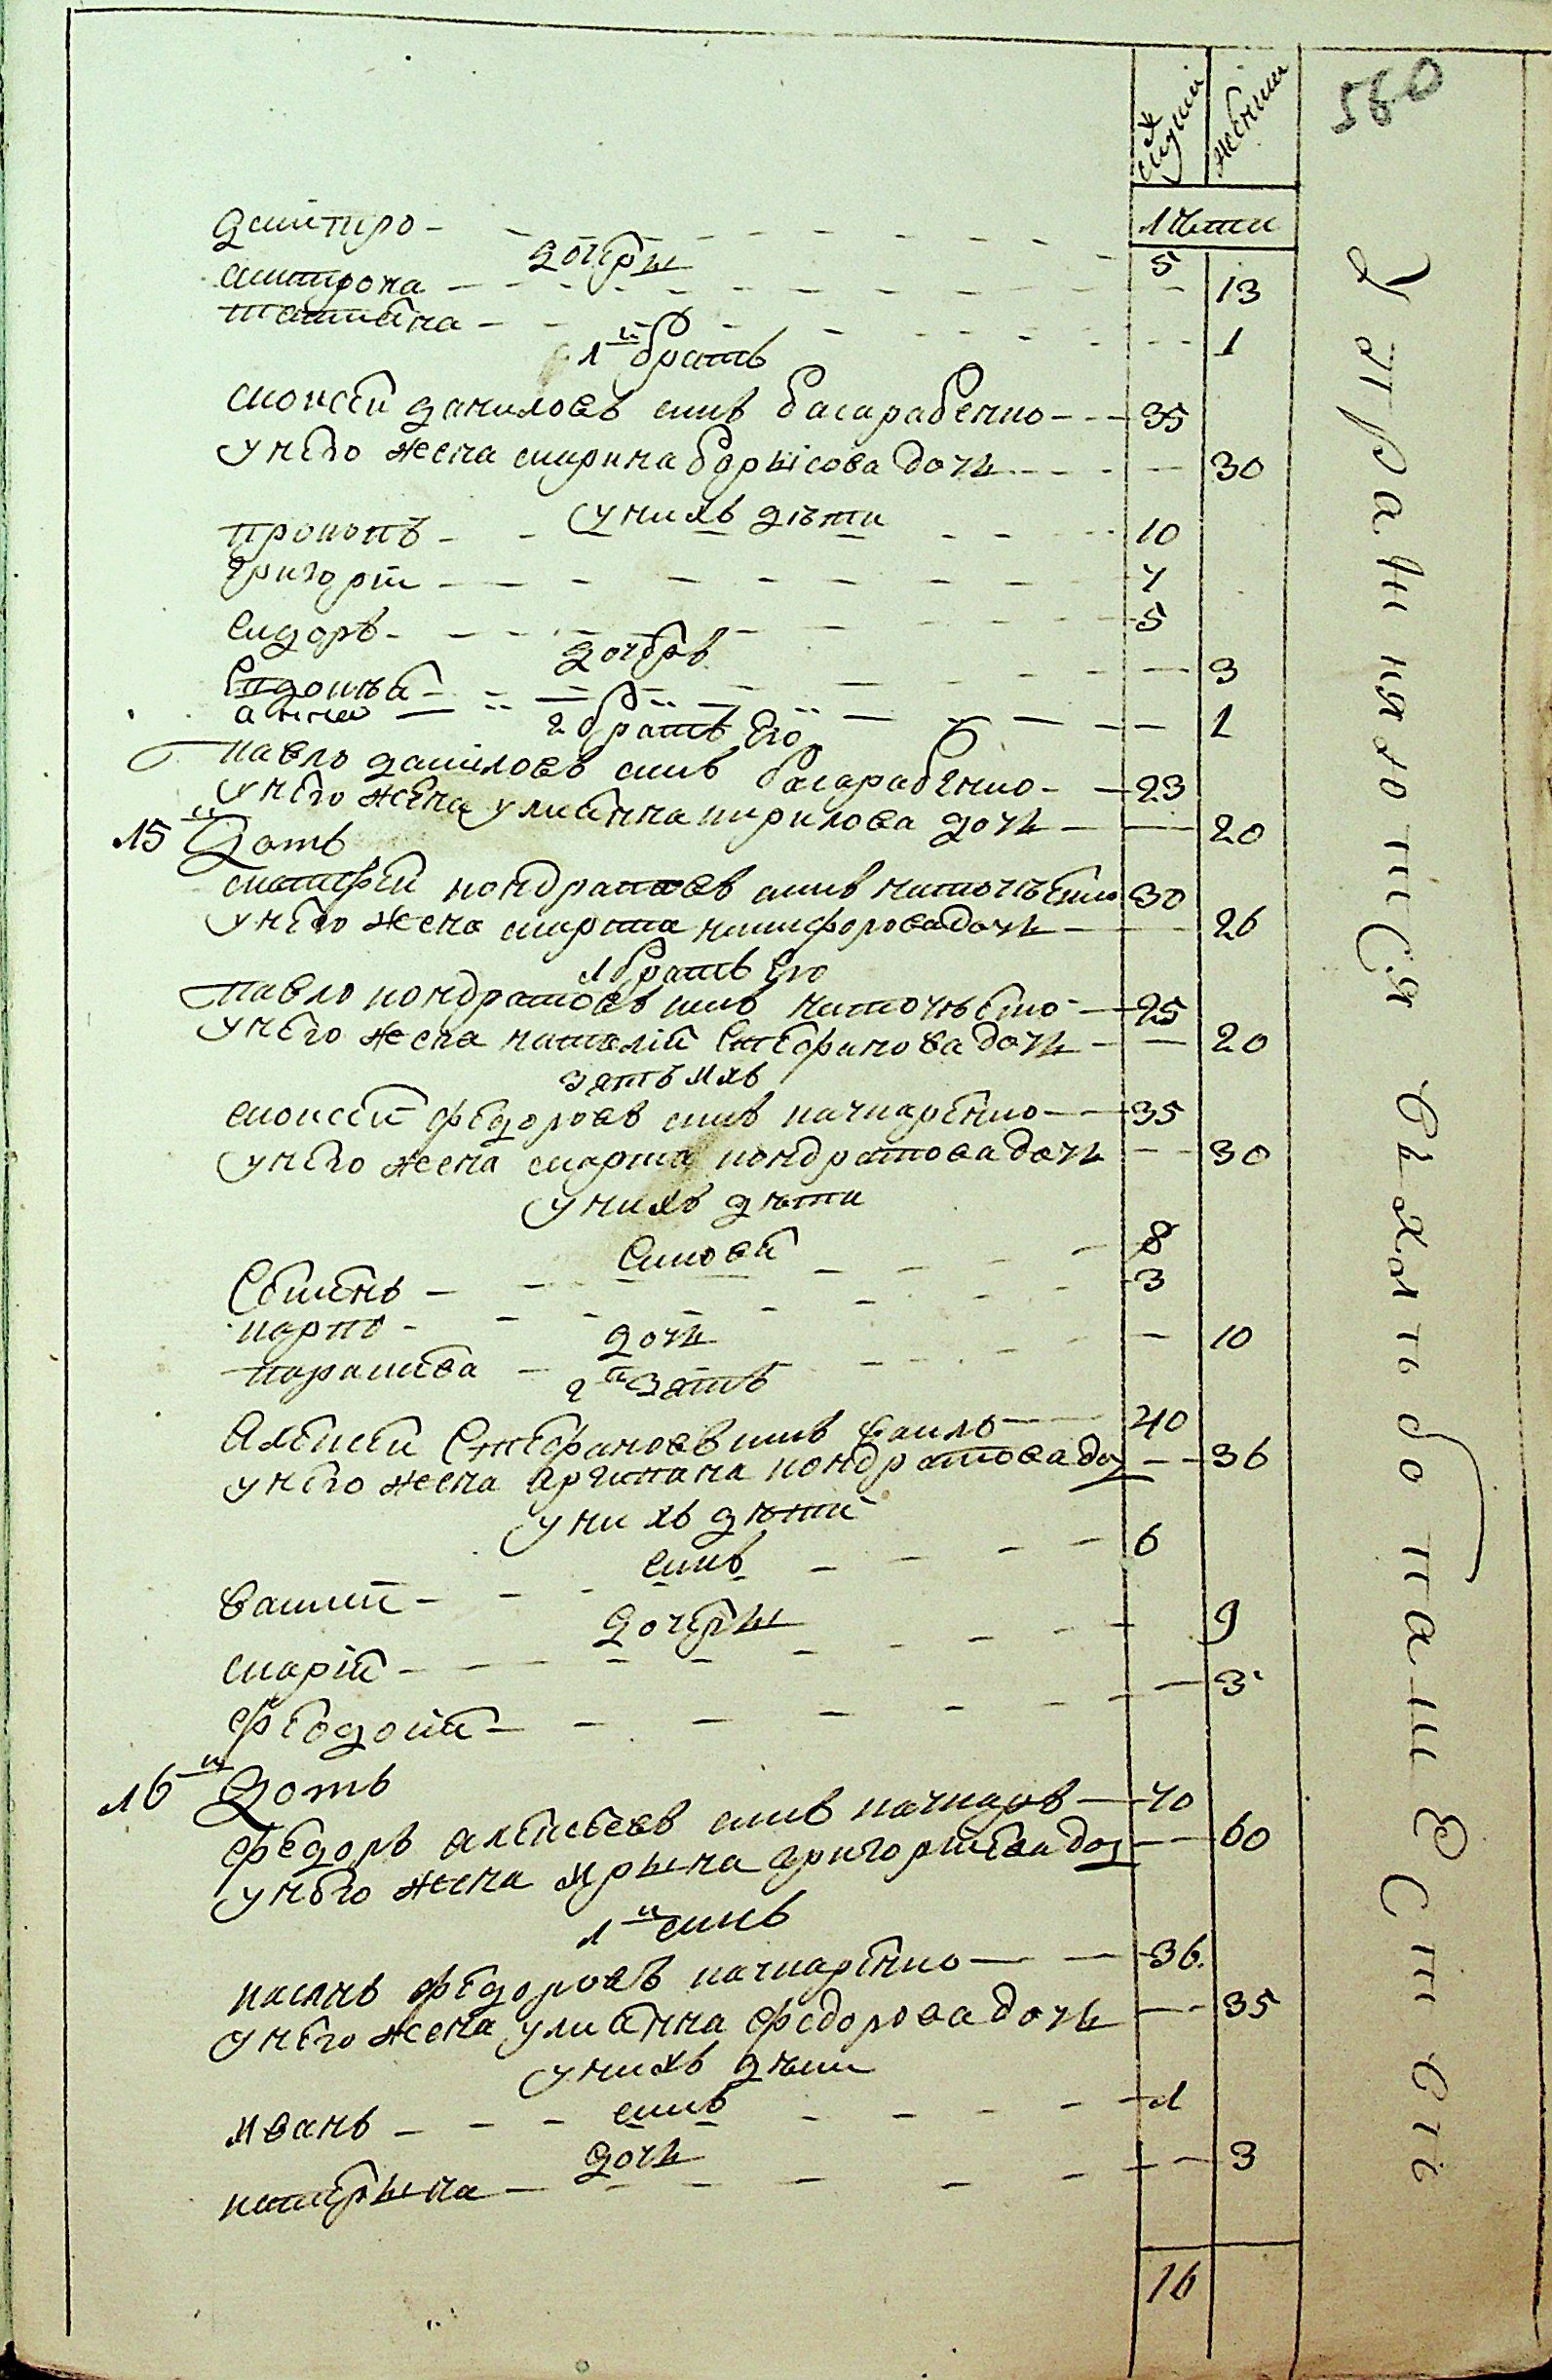 580
мужии женши
лѣти
дмитро 5
дочеры
мотрона 13
татияна 1
1й братъ
моисеи даниловъ синъ басарабенко 35
у него жена марина борисова дочь 30
у нихъ дѣти
прокопъ 10
григории 7
сидоръ 5
дочеръ
евдокия 3
анна 1
2 братъ его
павло даниловъ синъ басарабенко 23
у него жена улианна кирилова дочь 20
15й домъ
матфеи кондратовъ синъ 30
у него жена марта никифорова дочь 26
1 братъ его
павло кондратовъ синъ 25
у него жена наталия стефанова дочь 20
зять ихъ
моисеи федоровъ синъ качкаренко 35
у него жена марта кондратова дочь 30
у нихъ дѣти
синовя
семенъ 8
карпо 3
дочь
параскева 10
2й зять
алексеи стефановъ синъ 40
у него жена кондратова доч 36
у нихъ дѣти
синъ
васили 6
дочеры
мария 9
феодосия 3
16й домъ
федоръ алексеевъ синъ качкаръ 70
у него жена ирына григориева доч 60
1й синъ
касянъ федоровъ качкаренко 36
у него жена улианна федорова дочь 35
у нихъ дѣти
синъ
иванъ 1
дочь
катерына 3
16